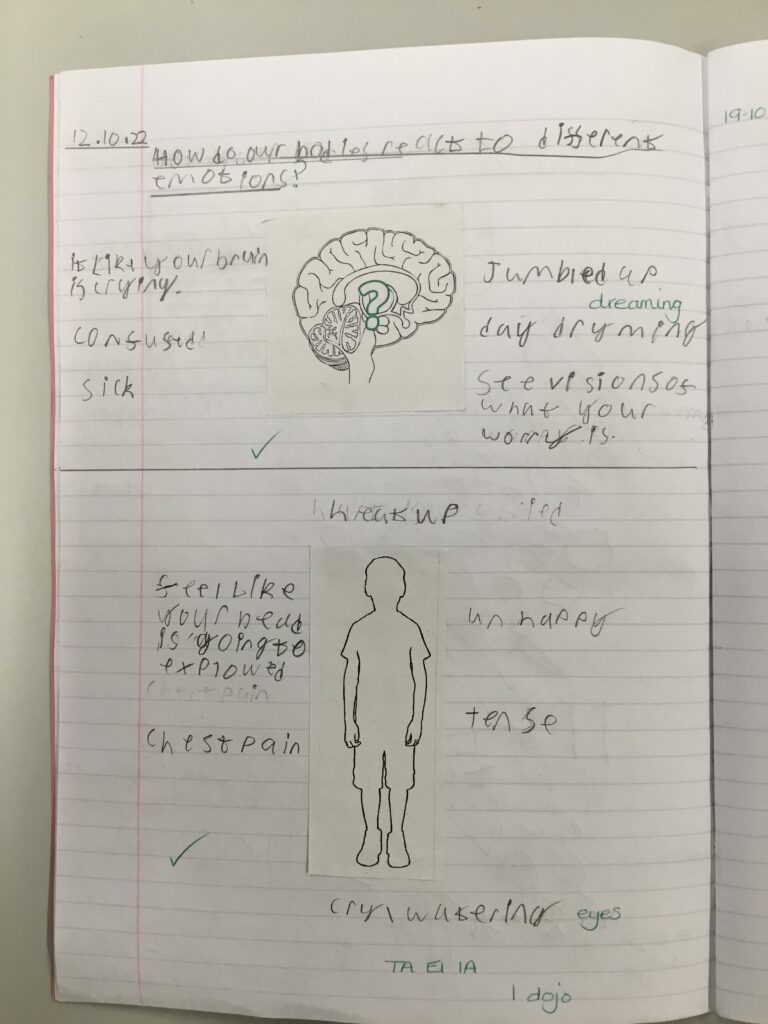 12.10.22
How do our bodies react to different
emotions?
it Like your brain
is crying.
confused
sick
Jumbled up
dreaming
day dryming
see visions of
what your
worry is.
up
feel Like
your head
is going to
explowed
chest pain
chest pain
un happy
tense
cry\ watering eyes
TA E1 IA
1 dojo
19.10